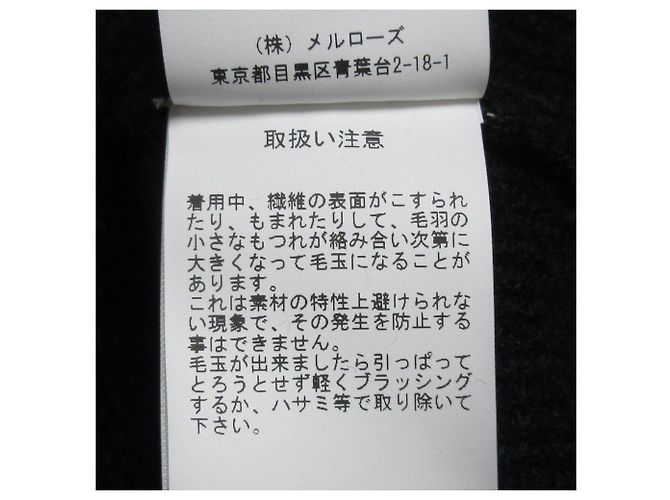 （株）メルローズ
東京都目黒区青葉台2-18-1
取扱い注意
着用中、繊維の表面がこすられ
たり、もまれたりして、毛羽の
小さなもつれが絡み合い次第に
大きくなって毛玉になることが
あります。
これは素材の特性上避けられな
い現象で、その発生を防止する
事はできません。
毛玉が出来ましたら引っぱって
とろうとせず軽くブラッシング
するか、ハサミ等で取り除いて
下さい。